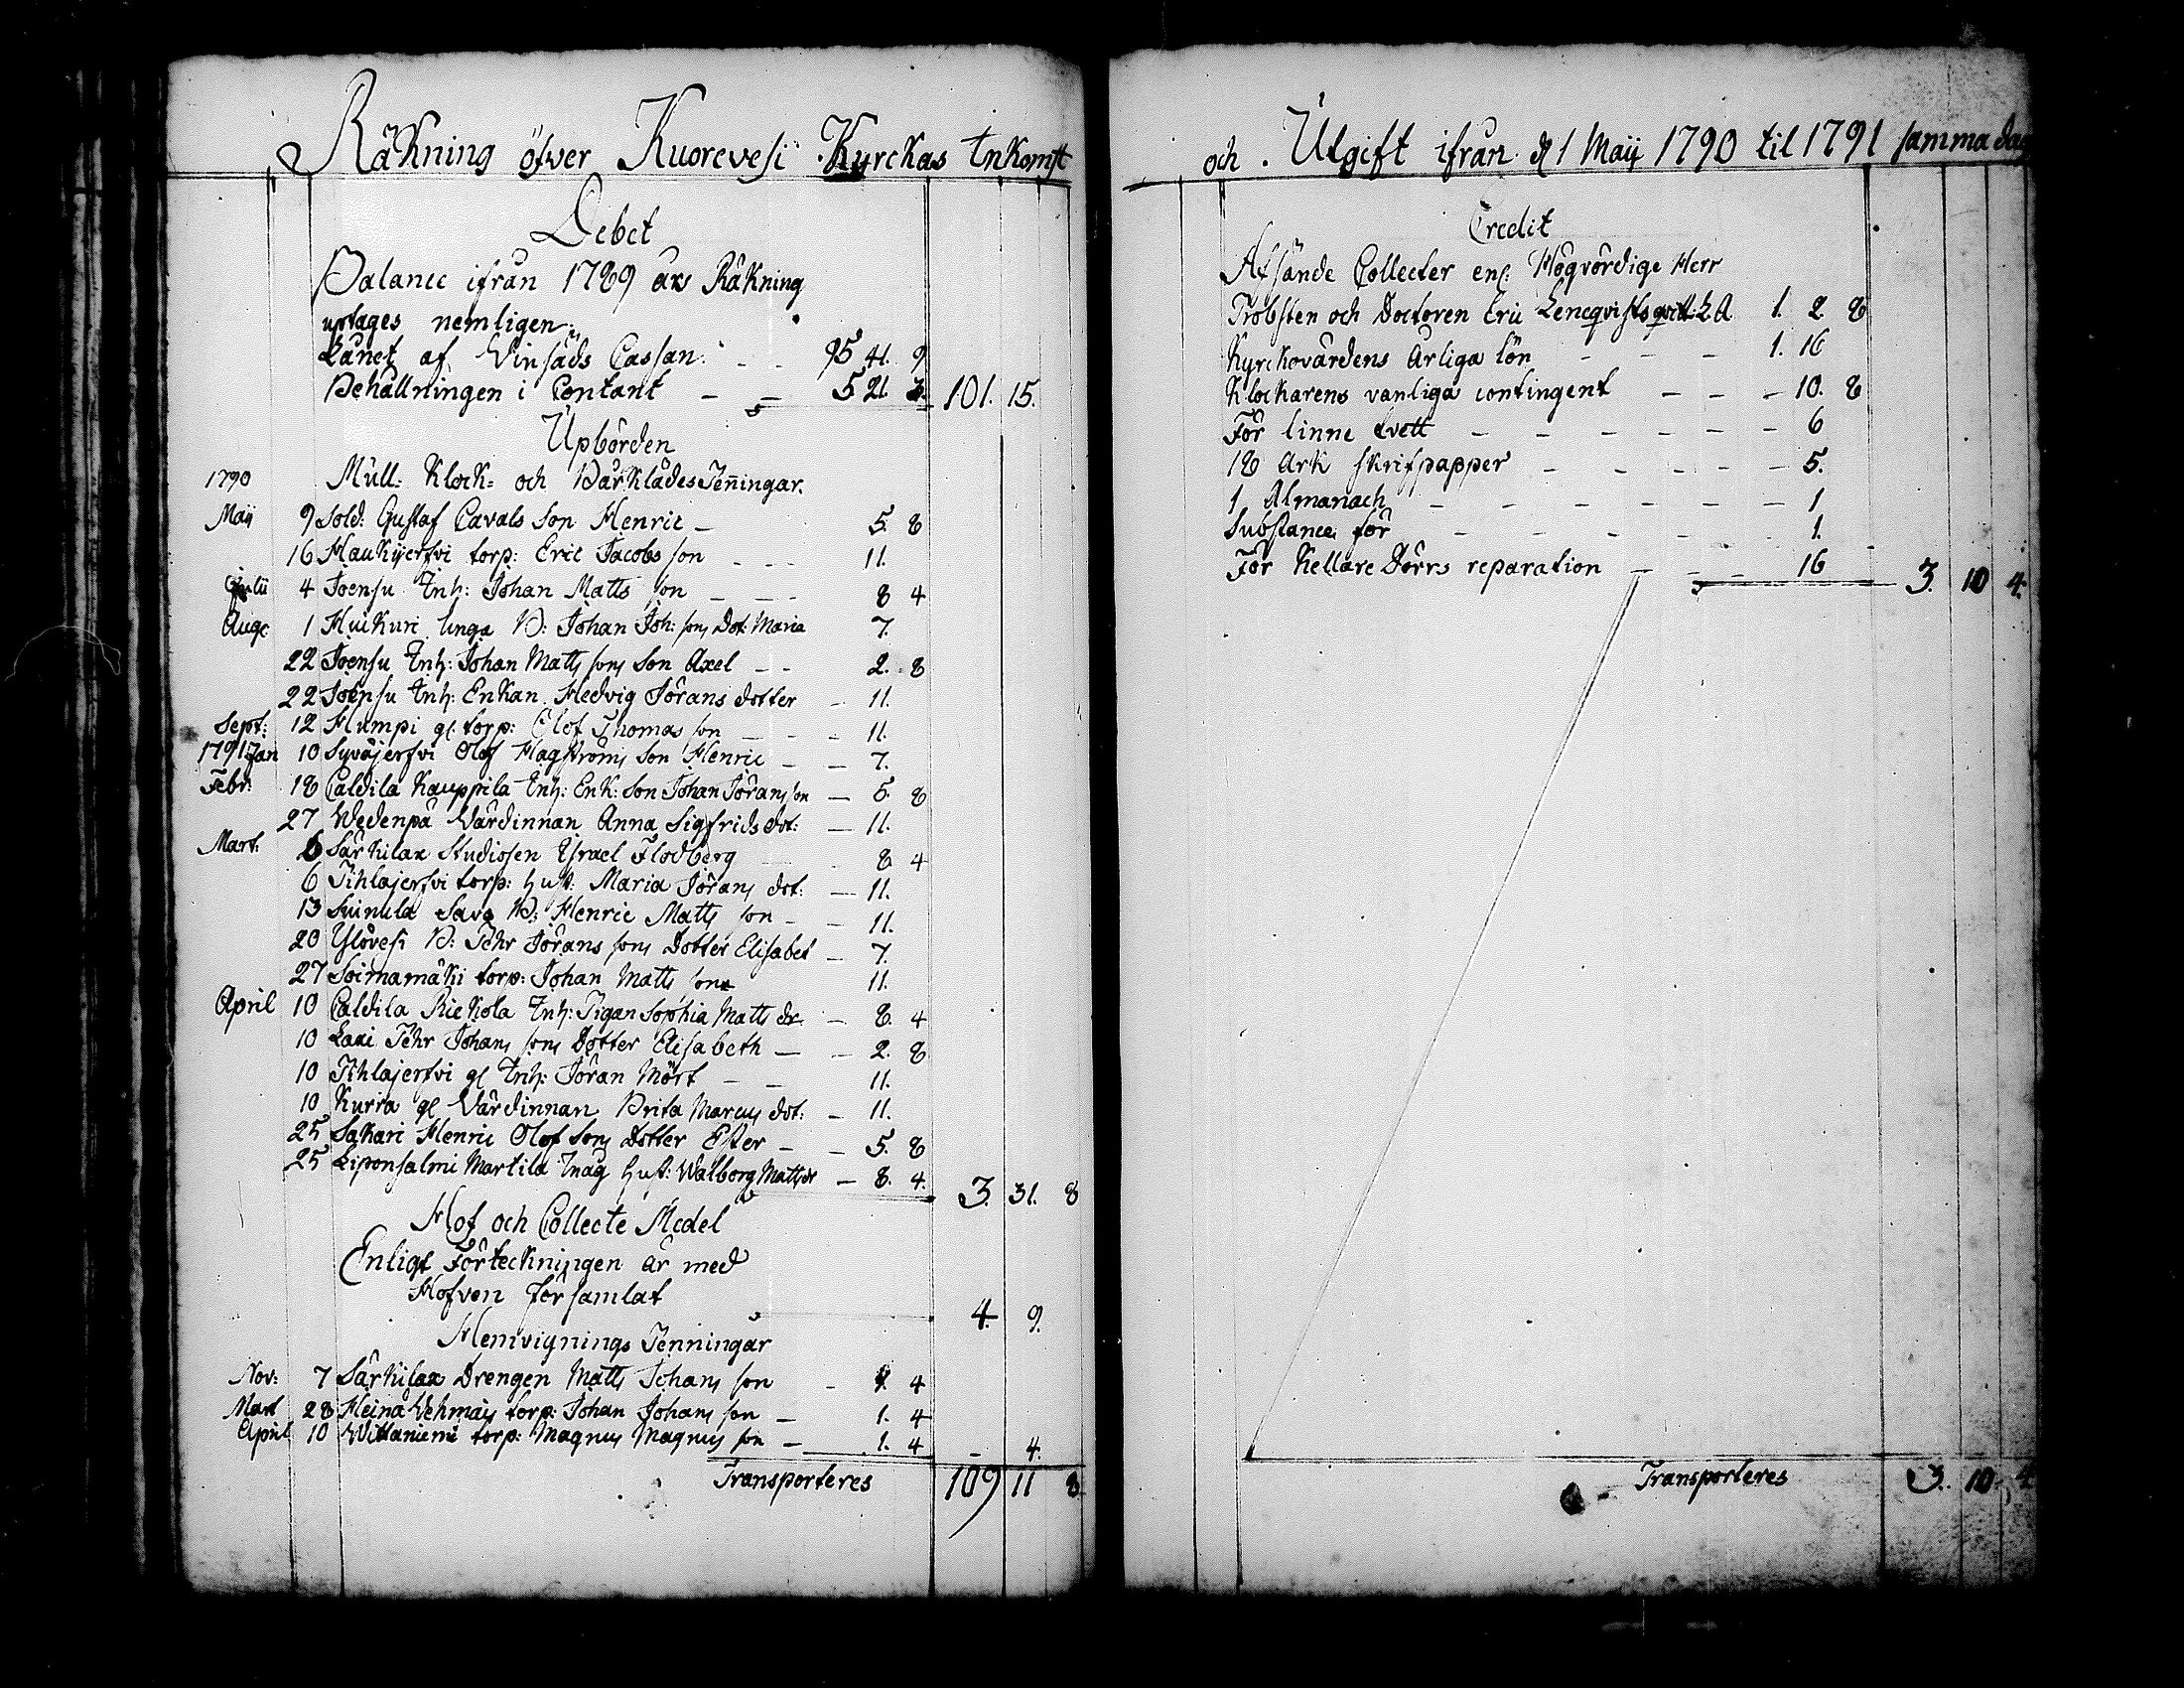 Räkning öfver Kuorevesi Kyrckas Inkomst
Debet
Balance ifrån 1789 års Räkning
uptages nemligen:
Lånet af Winsåds Cassan: - - 95 41. 9
Behållningen i Contant - - 5. 21. 3. 101. 15.
Upbörden
1790 Mull: Klock= och BårKlädesPeñingar.
Maij 9 Sold: Gustaf Cavals Son Henric - 5. 8
16 Haukijerfvi torp: Eric Jacobs son - - - 11.
4 Joensu Inh: Johan Matts son - - - 8 4
Aug: 1 Huikuri unga B: Johan Joh: sons Dot: Maria 7.
22 Joensu Inh: Johan Matts sons Son Axel - - 2. 8
22 Joensu Inh: Enkan Hedvig Jörans dotter - 11.
Sept: 12 Humpi gl: torp: Olof Thomas son - - - 11.
1791 Jan 10 Syväjerfvi Olof Hagströms Son Henric - - 7.
Febr: 18 Caldila Kauppila Inh: Enk: Son Johan Jörans son - 5. 8
27 Wedenpä Värdinnan Anna Sigfrids dot: - 11.
Mart: 6 Särkilax Studiosen Israel Flodberg 8. 4
6 Pihlajerfvi torp: Hust: Maria Jörans dot: - 11.
13 Suinula Savo B: Henric Matts son - - 11.
20 Ylövesi B: Pehr Jörans sons Dotter Elisabet - 7.
27 Soimamäki torp: Johan Matts son 11.
April 10 Caldila Rickola Inh: Pigan Sophia Matts dr - 8. 4
10 Laxi Pehr Johans sons Dotter Elisabeth - - 2. 8
10 Pihlajerfvi gl Inh: Jöran Mört - - 11.
10 Kurra gl Värdinnan Brita Marcus dot: - 11.
25 Sakari Henric Olof sons Dotter Ester - - 5. 8
25 Liponsalmi Martila Måg Hust: Walborg Matts dr - 8. 4. 3. 31. 8
Hof och Collecte Medel
Enligt Förteckningen är med
Hofven församlat 4. 9.
Hemvignings Penningar
Nov: 7 Särkilax Drengen Matts Johans son - 1. 4
Mart 28 Heinä Wehmais torp: Johan Johans son - 1. 4
April 10 Wittaniemi torp: Magnus Magnus son - 1. 4 - 4.
Transporteres 109 11 8
och Utgift ifrån d 1 Maij 1790 til 1791 samma dag
Credit
Afsände Collecter enl: Högvördige Herr
Probsten och Doctoren Eric Lencqvists qvitt: L A 1. 2 8
Kyrckovärdens Årliga lön - - - 1. 16
Klockarens vanliga contingent - - - 10. 8
För linne tvett - - - - - - 6
18 Ark skrifpapper - - - - - 5.
1 Almanach - - - - - - 1
Substance för - - - - - 1.
För Kellare Dörrs reparation - - - 16 3. 10 4.
Transporteres 3. 10. 4